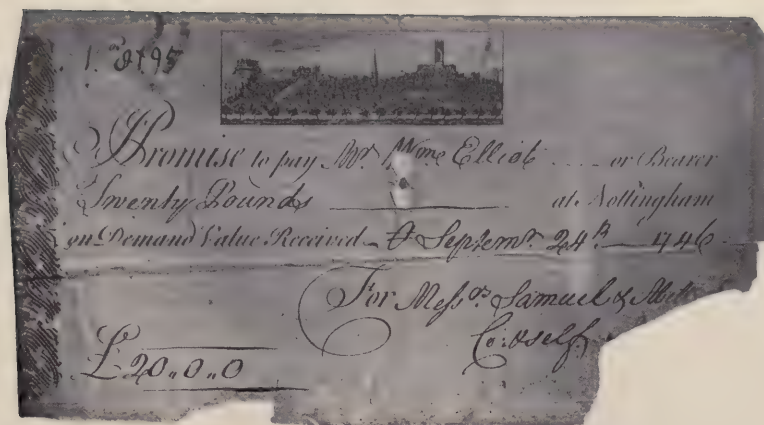 Promise to pay Mr. Wme Elliot or Bearer
Twenty Pounds at Nottingham
on Demand Value Received Septemr. 24th 1746
For Messrs. Samuel &
Co: & self
£20..0..0